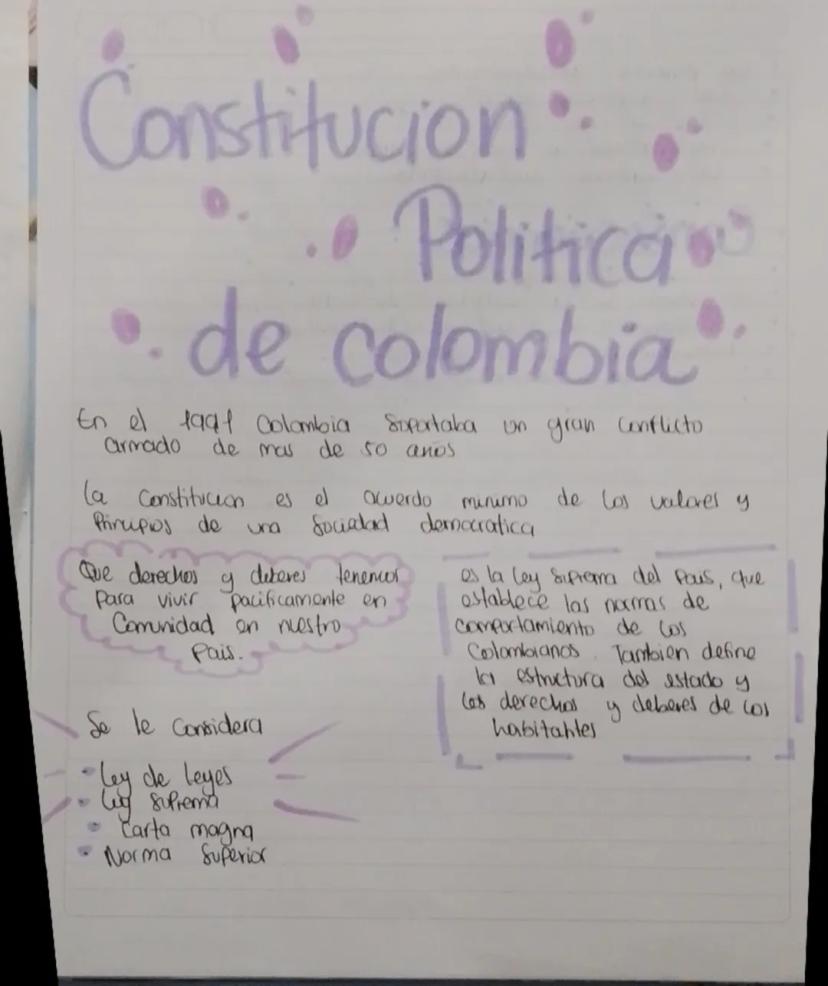 Constitucion
Politica
de colombia
En el 1991 Colombia soportaba un gran conflicto
armado de mas de 50 años
La constitucion es el acuerdo minimo de los valores y
Principios de una sociedad democratica
Que derechos y deberes tenemos
para vivir pacificamente en
Comunidad en nuestro
pais.
es la ley suprema del pais, que
establece las normas de
comportamiento de los
Colombianos. Tambien define
la estructura del estado y
los derechos y deberes de los
habitantes
Se le considera
• Ley de leyes
• Ley suprema
• Carta magna
• Norma superior